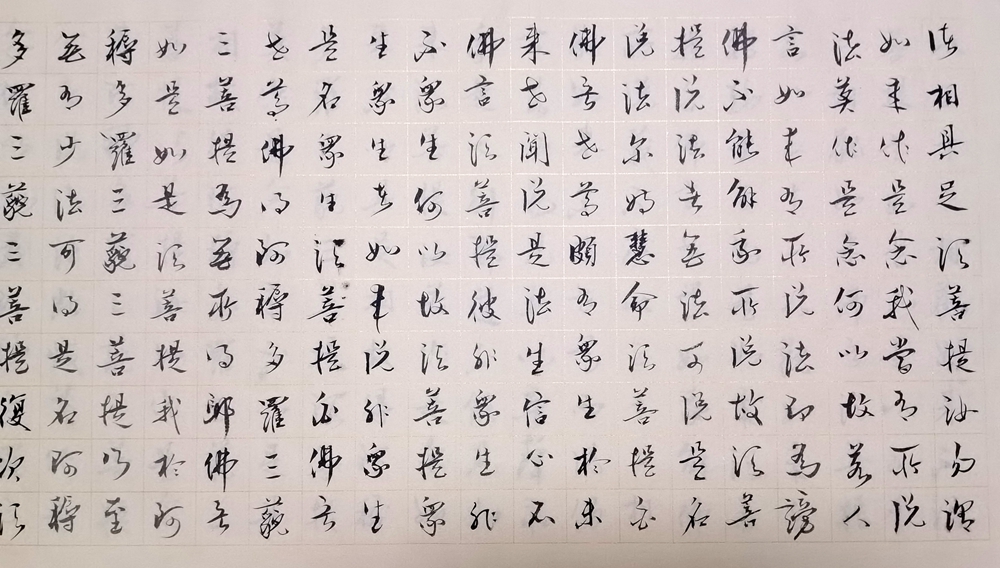 諸相具足須菩提汝勿謂
如來作是念我當有所說
法莫作是念何以故若人
言如來有所說法即為謗
佛不能解我所說故須菩
提說法者無法可說是名
說法爾時慧命須菩提白
佛言世尊頗有眾生於未
來世聞說是法生信心不
佛言須菩提彼非眾生非
不眾生何以故須菩提眾
生眾生者如來說非眾生
是名眾生須菩提白佛言
世尊佛得阿耨多羅三藐
三菩提為無所得耶佛言
如是如是須菩提我於阿
耨多羅三藐三菩提乃至
無有少法可得是名阿耨
多羅三藐三菩提復次須